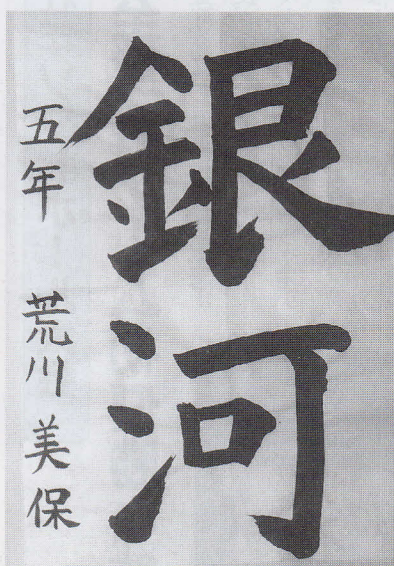 銀河
五年 荒川美保